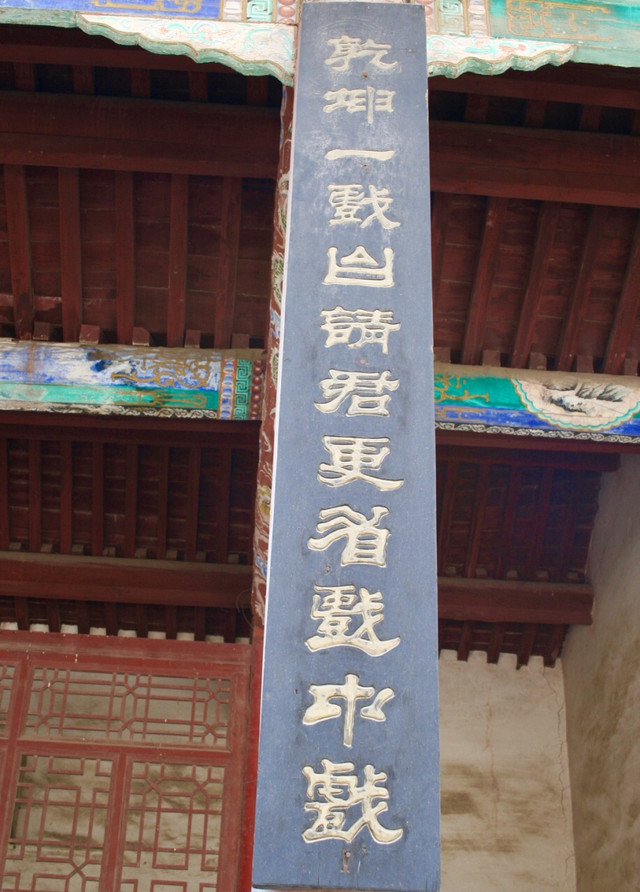 乾坤一戲台請君更看戲中戲